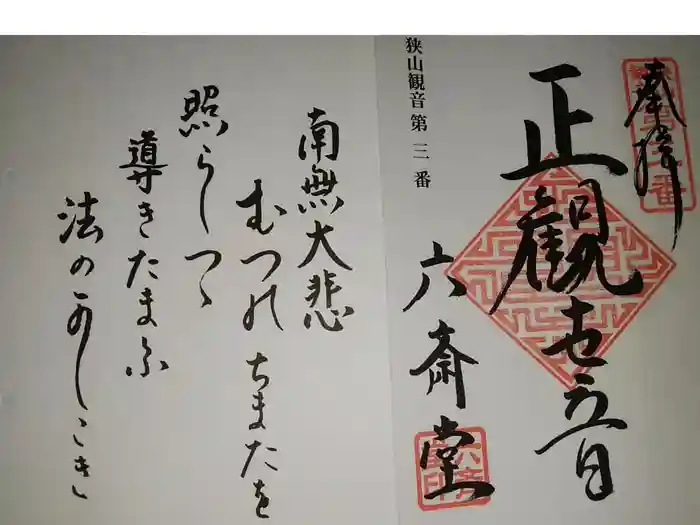 奉拝
正観世音
六斎堂
狭山観音第三番
南無大悲
むつのちまたを
照らしつゝ
導きたまふ
法の